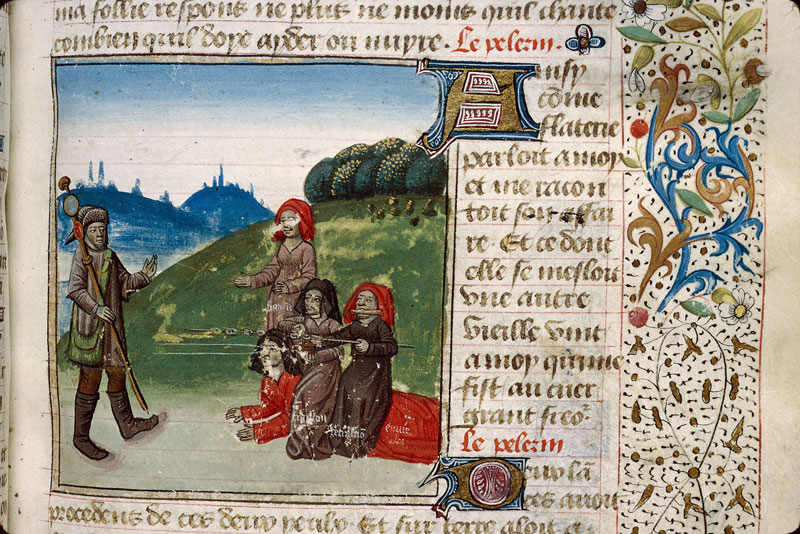 ma follie respons ne plut ne moins quil chante
combien quil doye ayder ou nuyre. Le pelerin.
Ainsy
cõme
flaterie
parloit a moy
et me racon
toit son affai
re. Et ce dont
elle se mesloit
vne autre
vieille vint
a moy qui me
fist au cuer
grant freor
Le pelerin
enuie
procedens de ces deux yeulx. Et sur terre aloit a